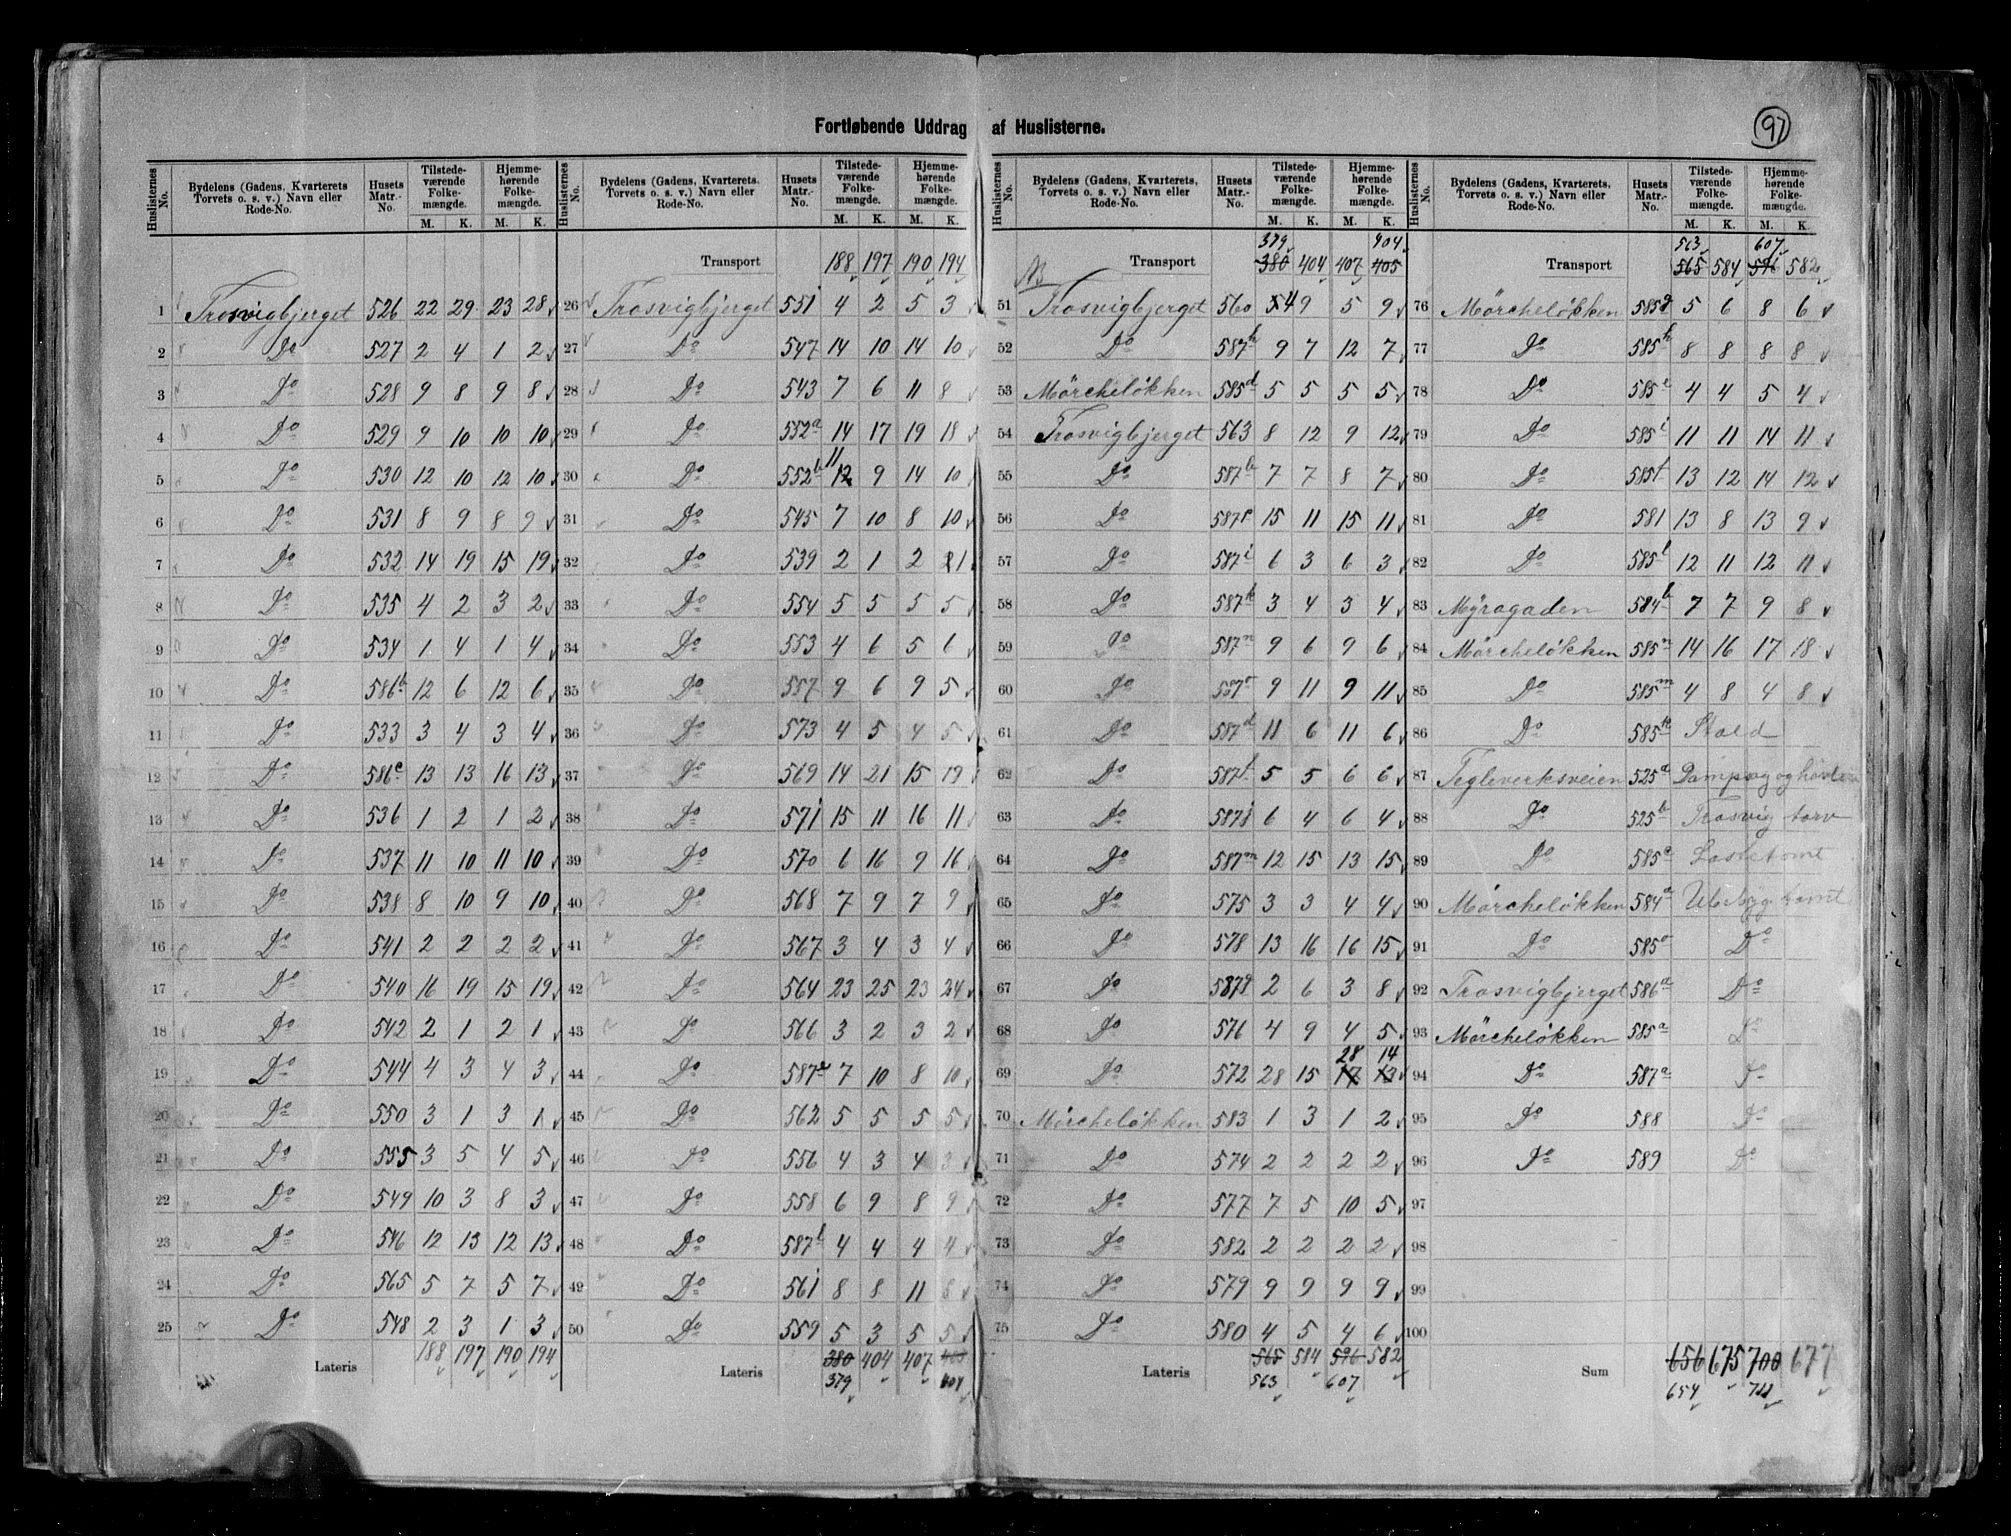 97
Fortløbende Uddrag af Huslisterne.
Huslisternes No. Bydelens (Gadens, Kvarterets Torvets o. s. v.) Navn eller Rode-No. Husets Matr.-No. Tilstedeværende Folkemængde. M. K. Hjemmehørende Folkemængde. M. K.
1 Trosvigbjerget 526 22 29 23 28
2 Do 527 2 4 1 2
3 Do 528 9 8 9 8
4 Do 529 9 10 10 10
5 Do 530 12 10 12 10
6 Do 531 8 9 8 9
7 Do 532 14 19 15 19
8 Do 535 4 2 3 2
9 Do 534 1 4 1 4
10 Do 586b 12 6 12 6
11 Do 533 3 4 3 4
12 Do 586c 13 13 16 13
13 Do 536 1 2 1 2
14 Do 537 11 10 11 10
15 Do 538 8 10 9 10
16 Do 541 2 2 2 2
17 Do 540 16 19 15 19
18 Do 542 2 1 2 1
19 Do 544 4 3 4 3
20 Do 550 3 1 3 1
21 Do 555 3 5 4 5
22 Do 549 10 3 8 3
23 Do 546 12 13 12 13
24 Do 565 5 7 5 7
25 Do 548 2 3 1 3
Lateris 188 197 190 194
Huslisternes No. Bydelens (Gadens, Kvarterets, Torvets o. s. v.) Navn eller Rode-No. Husets Matr.-No. Tilstedeværende Folkemængde. M. K. Hjemmehørende Folkemængde. M. K.
Transport 188 197 190 194
26 Trosvigbjerget 551 4 2 5 3
27 Do 547 14 10 14 10
28 Do 543 7 6 11 8
29 Do 552a 14 17 19 18
30 Do 552b 12 11 9 14 10
31 Do 545 7 10 8 10
32 Do 539 2 1 2 1
33 Do 554 5 5 5 5
34 Do 553 4 6 5 6
35 Do 557 9 6 9 5
36 Do 573 4 5 4 5
37 Do 569 14 21 15 19
38 Do 571 15 11 16 11
39 Do 570 6 16 9 16
40 Do 568 7 9 7 9
41 Do 567 3 4 3 4
42 Do 564 23 25 23 24
43 Do 566 3 2 3 2
44 Do 587e 7 10 8 10
45 Do 562 5 5 5 5
46 Do 556 4 3 4 3
47 Do 558 6 9 8 9
48 Do 587l 4 4 4 4
49 Do 561 8 8 11 8
50 Do 559 5 3 5 5
Lateris 380 404 407 405
379 404
Huslisternes No. Bydelens (Gadens, Kvarterets, Torvets o. s. v.) Navn eller Rode-No. Husets Matr.-No. Tilstedeværende Folkemængde. M. K. Hjemmehørende Folkemængde. M. K.
379 404
Transport 380 404 407 405
51 Trosvigbjerget 560 5 4 9 5 9
52 Do 587h 9 7 12 7
53 Mörcheløkken 585d 5 5 5 5
54 Trosvigbjerget 563 8 12 9 12
55 Do 587b 7 7 8 7
56 Do 587p 15 11 15 11
57 Do 587i 6 3 6 3
58 Do 587k 3 4 3 4
59 Do 587n 9 6 9 6
60 Do 587o 9 11 9 11
61 Do 587d 11 6 11 6
62 Do 587f 5 5 6 6
63 Do 587j 6 4 6 4
64 Do 587m 12 15 13 15
65 Do 575 3 3 4 4
66 Do 578 13 16 16 15
67 Do 587g 2 6 3 8
68 Do 576 4 9 4 5
28 14
69 Do 572 28 15 17 13
70 Mörcheløkken 583 1 3 1 2
71 Do 574 2 2 2 2
72 Do 577 7 5 10 5
73 Do 582 2 2 2 2
74 Do 579 9 9 9 9
75 Do 580 4 5 4 6
Lateris 565 584 596 582
563 607
Huslisternes No. Bydelens (Gadens, Kvarterets, Torvets o. s. v.) Navn eller Rode-No. Husets Matr.-No. Tilstedeværende Folkemængde. M. K. Hjemmehørende Folkemængde. M. K.
563 607
Transport 565 584 596 582
76 Mörcheløkken 585g 5 6 8 6
77 Do 585h 8 8 8 8
78 Do 585e 4 4 5 4
79 Do 585i 11 11 14 11
80 Do 585f 13 12 14 12
81 Do 581 13 8 13 9
82 Do 585l 12 11 12 11
83 Myragaden 584b 7 7 9 8
84 Mörcheløkken 585n 14 16 17 18
85 Do 585m 4 8 4 8
86 Do 585k Stald
87 Tegleverksveien 525a Dampsag og
88 Do 525b Trosvig torv
89 Do 585a
90 Mörcheløkken 584a Ubebyg tomt
91 Do 585o Do
92 Trosvigbjerget 586a Do
93 Mörcheløkken 585a Do
94 Do 587a Do
95 Do 588 Do
96 Do 589 Do
97
98
99
100
Sum 656 675 700 677
654 711